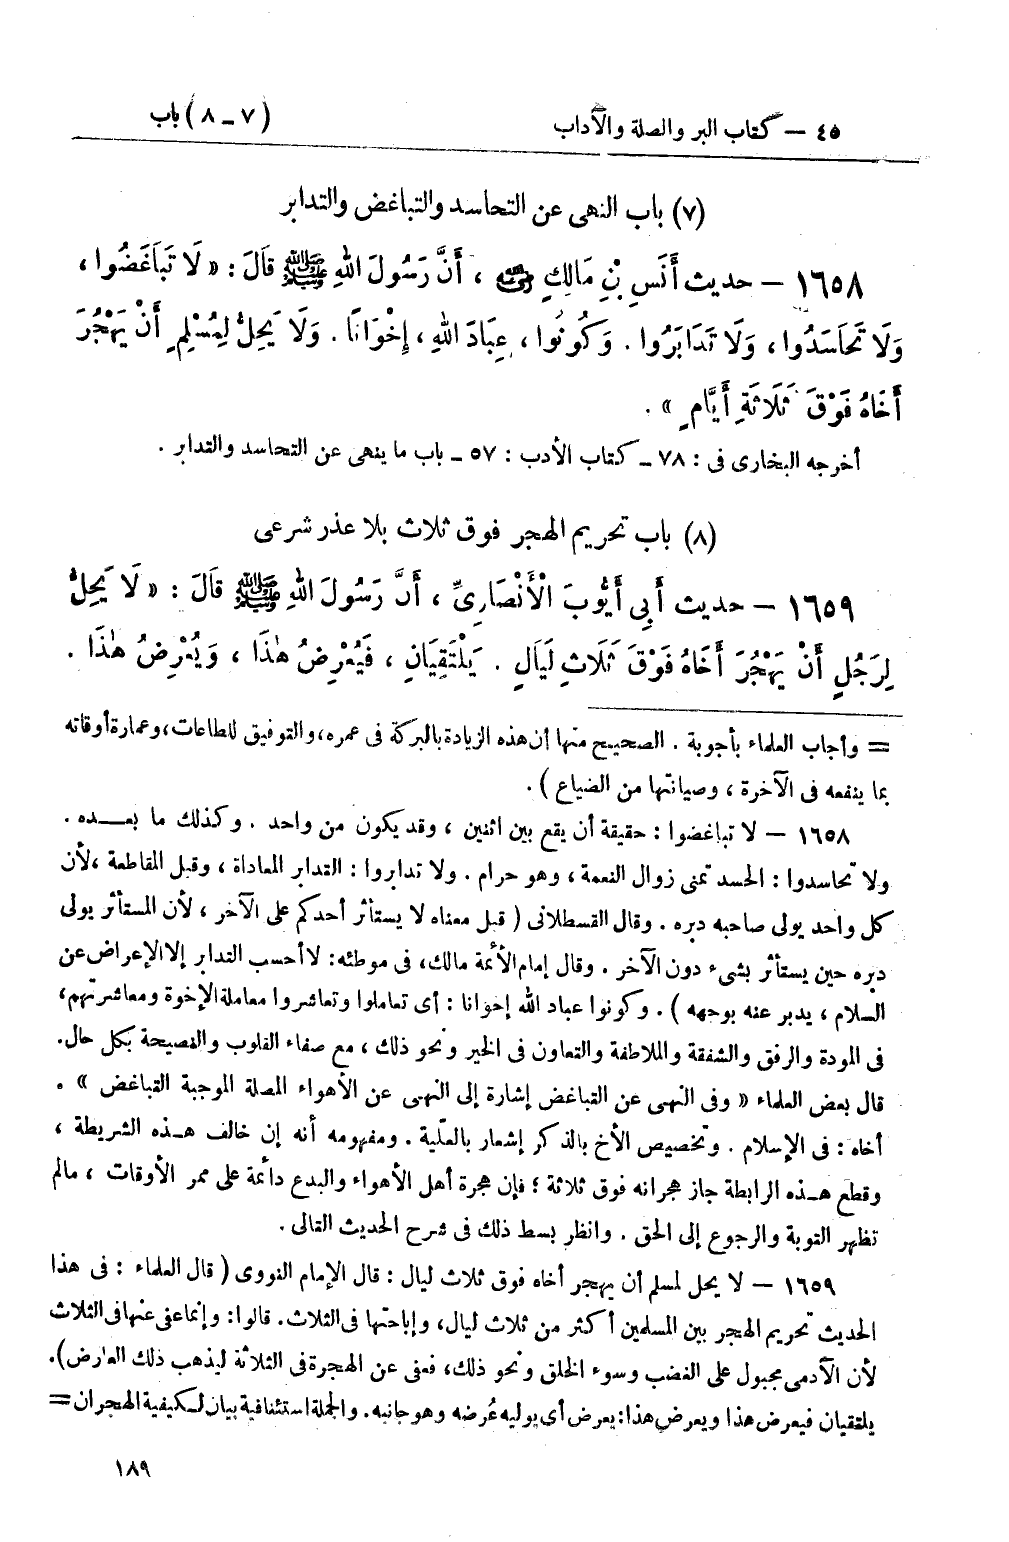 ٤٥ – كتاب البر والصلة والآداب (٧ – ٨) باب
(٧) باب النهى عن التحاسد والتباغض والتدابر
١٦٥٨ – حديث أَنَسِ بْنِ مَالِكٍ رضي الله عنه ، أَنَّ رَسُولَ اللهِ ﷺ قَالَ : « لَا تَبَاغَضُوا ،
وَلَا تَحَاسَدُوا ، وَلَا تَدَابَرُوا . وَكُونُوا ، عِبَادَ اللهِ ، إِخْوَانًا . وَلَا يَحِلُّ لِمُسْلِمٍ أَنْ يَهْجُرَ
أَخَاهُ فَوْقَ ثَلَاثَةِ أَيَّامٍ » .
أخرجه البخارى فى : ٧٨ – كتاب الأدب : ٥٧ – باب ما ينهى عن التحاسد والتدابر .
(٨) باب تحريم الهجر فوق ثلاث بلا عذر شرعى
١٦٥٩ – حديث أَبِي أَيُّوبَ الْأَنْصَارِيِّ ، أَنَّ رَسُولَ اللهِ ﷺ قَالَ : « لَا يَحِلُّ
لِرَجُلٍ أَنْ يَهْجُرَ أَخَاهُ فَوْقَ ثَلَاثِ لَيَالٍ . يَلْتَقِيَانِ ، فَيُعْرِضُ هٰذَا ، وَيُعْرِضُ هٰذَا .
= وأجاب العلماء بأجوبة . الصحيح منها أن هذه الزيادة بالبركة فى عمره، والتوفيق للطاعات، وعمارة أوقاته
بما ينفعه فى الآخرة ، وصيانتها من الضياع ) .
١٦٥٨ – لا تباغضوا : حقيقة أن يقع بين اثنين ، وقد يكون من واحد . وكذلك ما بعــده .
ولا تحاسدوا : الحسد تمنى زوال النعمة ، وهو حرام . ولا تدابروا : التدابر المعاداة ، وقيل المقاطعة ، لأن
كل واحد يولى صاحبه دبره . وقال القسطلانى ( قيل معناه لا يستأثر أحدكم على الآخر ، لأن المستأثر يولى
دبره حين يستأثر بشىء دون الآخر . وقال إمام الأئمة مالك، فى موطئه: لا أحسب التدابر إلا الإعراض عن
السلام ، يدبر عنه بوجهه ) . وكونوا عباد الله إخوانا : أى تعاملوا وتعاشروا معاملة الإخوة ومعاشرتهم،
فى المودة والرفق والشفقة والملاطفة والتعاون فى الخير ونحو ذلك ، مع صفاء القلوب والنصيحة بكل حال.
قال بعض العلماء « وفى النهى عن التباغض إشارة إلى النهى عن الأهواء المضلة الموجبة التباغض » .
أخاه : فى الإسلام . وتخصيص الأخ بالذكر إشعار بالعلّية . ومفهومه أنه إن خالف هــذه الشريطة ،
وقطع هــذه الرابطة جاز هجرانه فوق ثلاثة ؛ فإن هجرة أهل الأهواء والبدع دائمة على ممر الأوقات ، مالم
تظهر التوبة والرجوع إلى الحق . وانظر بسط ذلك فى شرح الحديث التالى .
١٦٥٩ – لا يحل لمسلم أن يهجر أخاه فوق ثلاث ليال : قال الإمام النووى ( قال العلماء : فى هذا
الحديث تحريم الهجر بين المسلمين أكثر من ثلاث ليال، وإباحتها فى الثلاث. قالوا: وإنما عفى عنها فى الثلاث
لأن الآدمى مجبول على الغضب وسوء الخلق ونحو ذلك، فعفى عن الهجرة فى الثلاثة ليذهب ذلك العارض).
يلتقيان فيعرض هذا ويعرض هذا: يعرض أى يوليه عُرضه وهو جانبه. والجملة استئنافية بيان لكيفية الهجران =
١٨٩